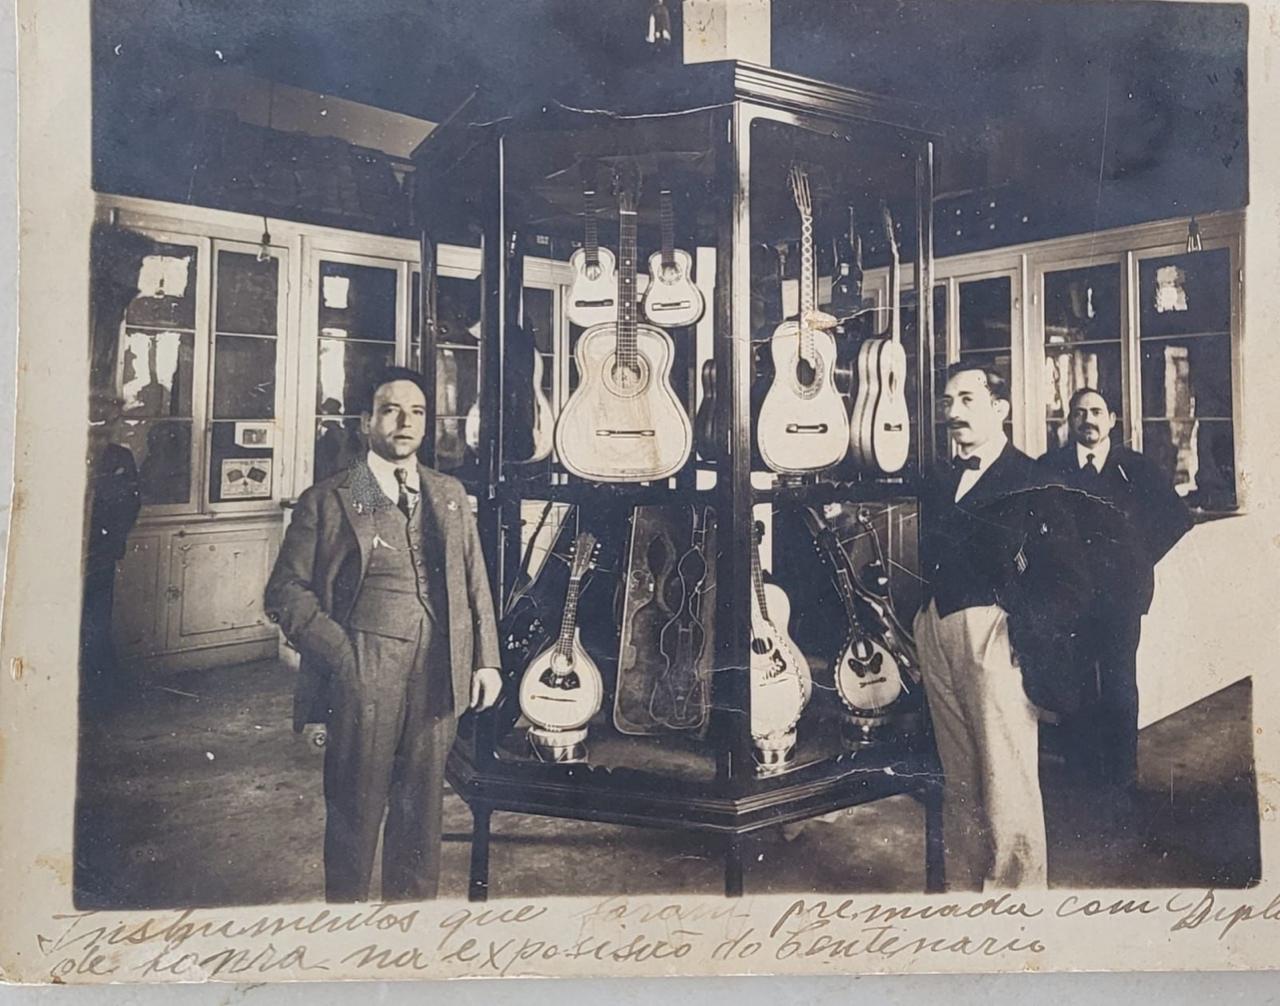 Instrumentos que foram premiada com Diplo
de honra na exposisão do Centenario